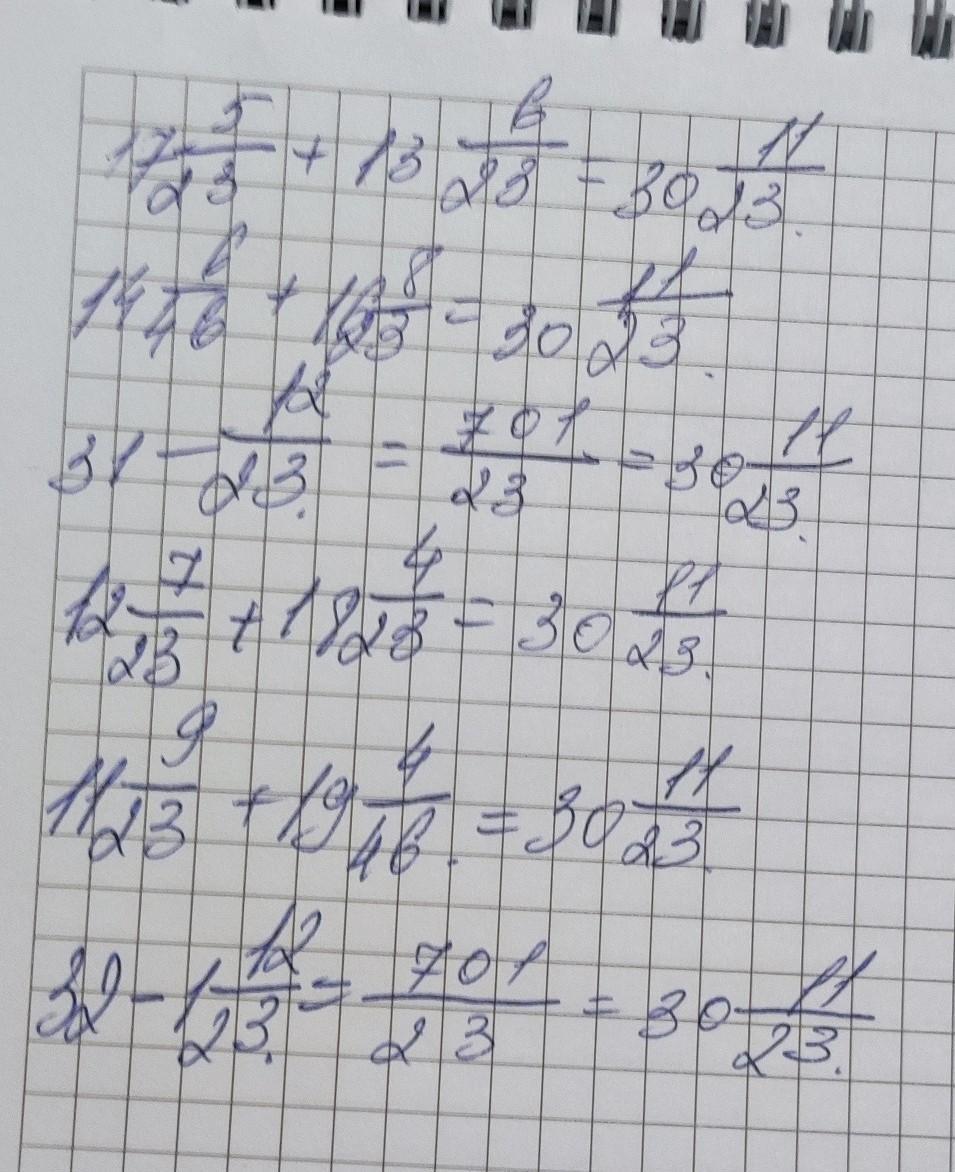 17 5/23 + 13 6/23 = 30 11/23.
14 6/46 + 16 8/23 = 30 11/23.
31 - 12/23. = 701/23 = 30 11/23.
12 7/23 + 18 4/23 = 30 11/23.
11 9/23 + 19 4/46. = 30 11/23.
32 - 1 12/23. = 701/23 = 30 11/23.